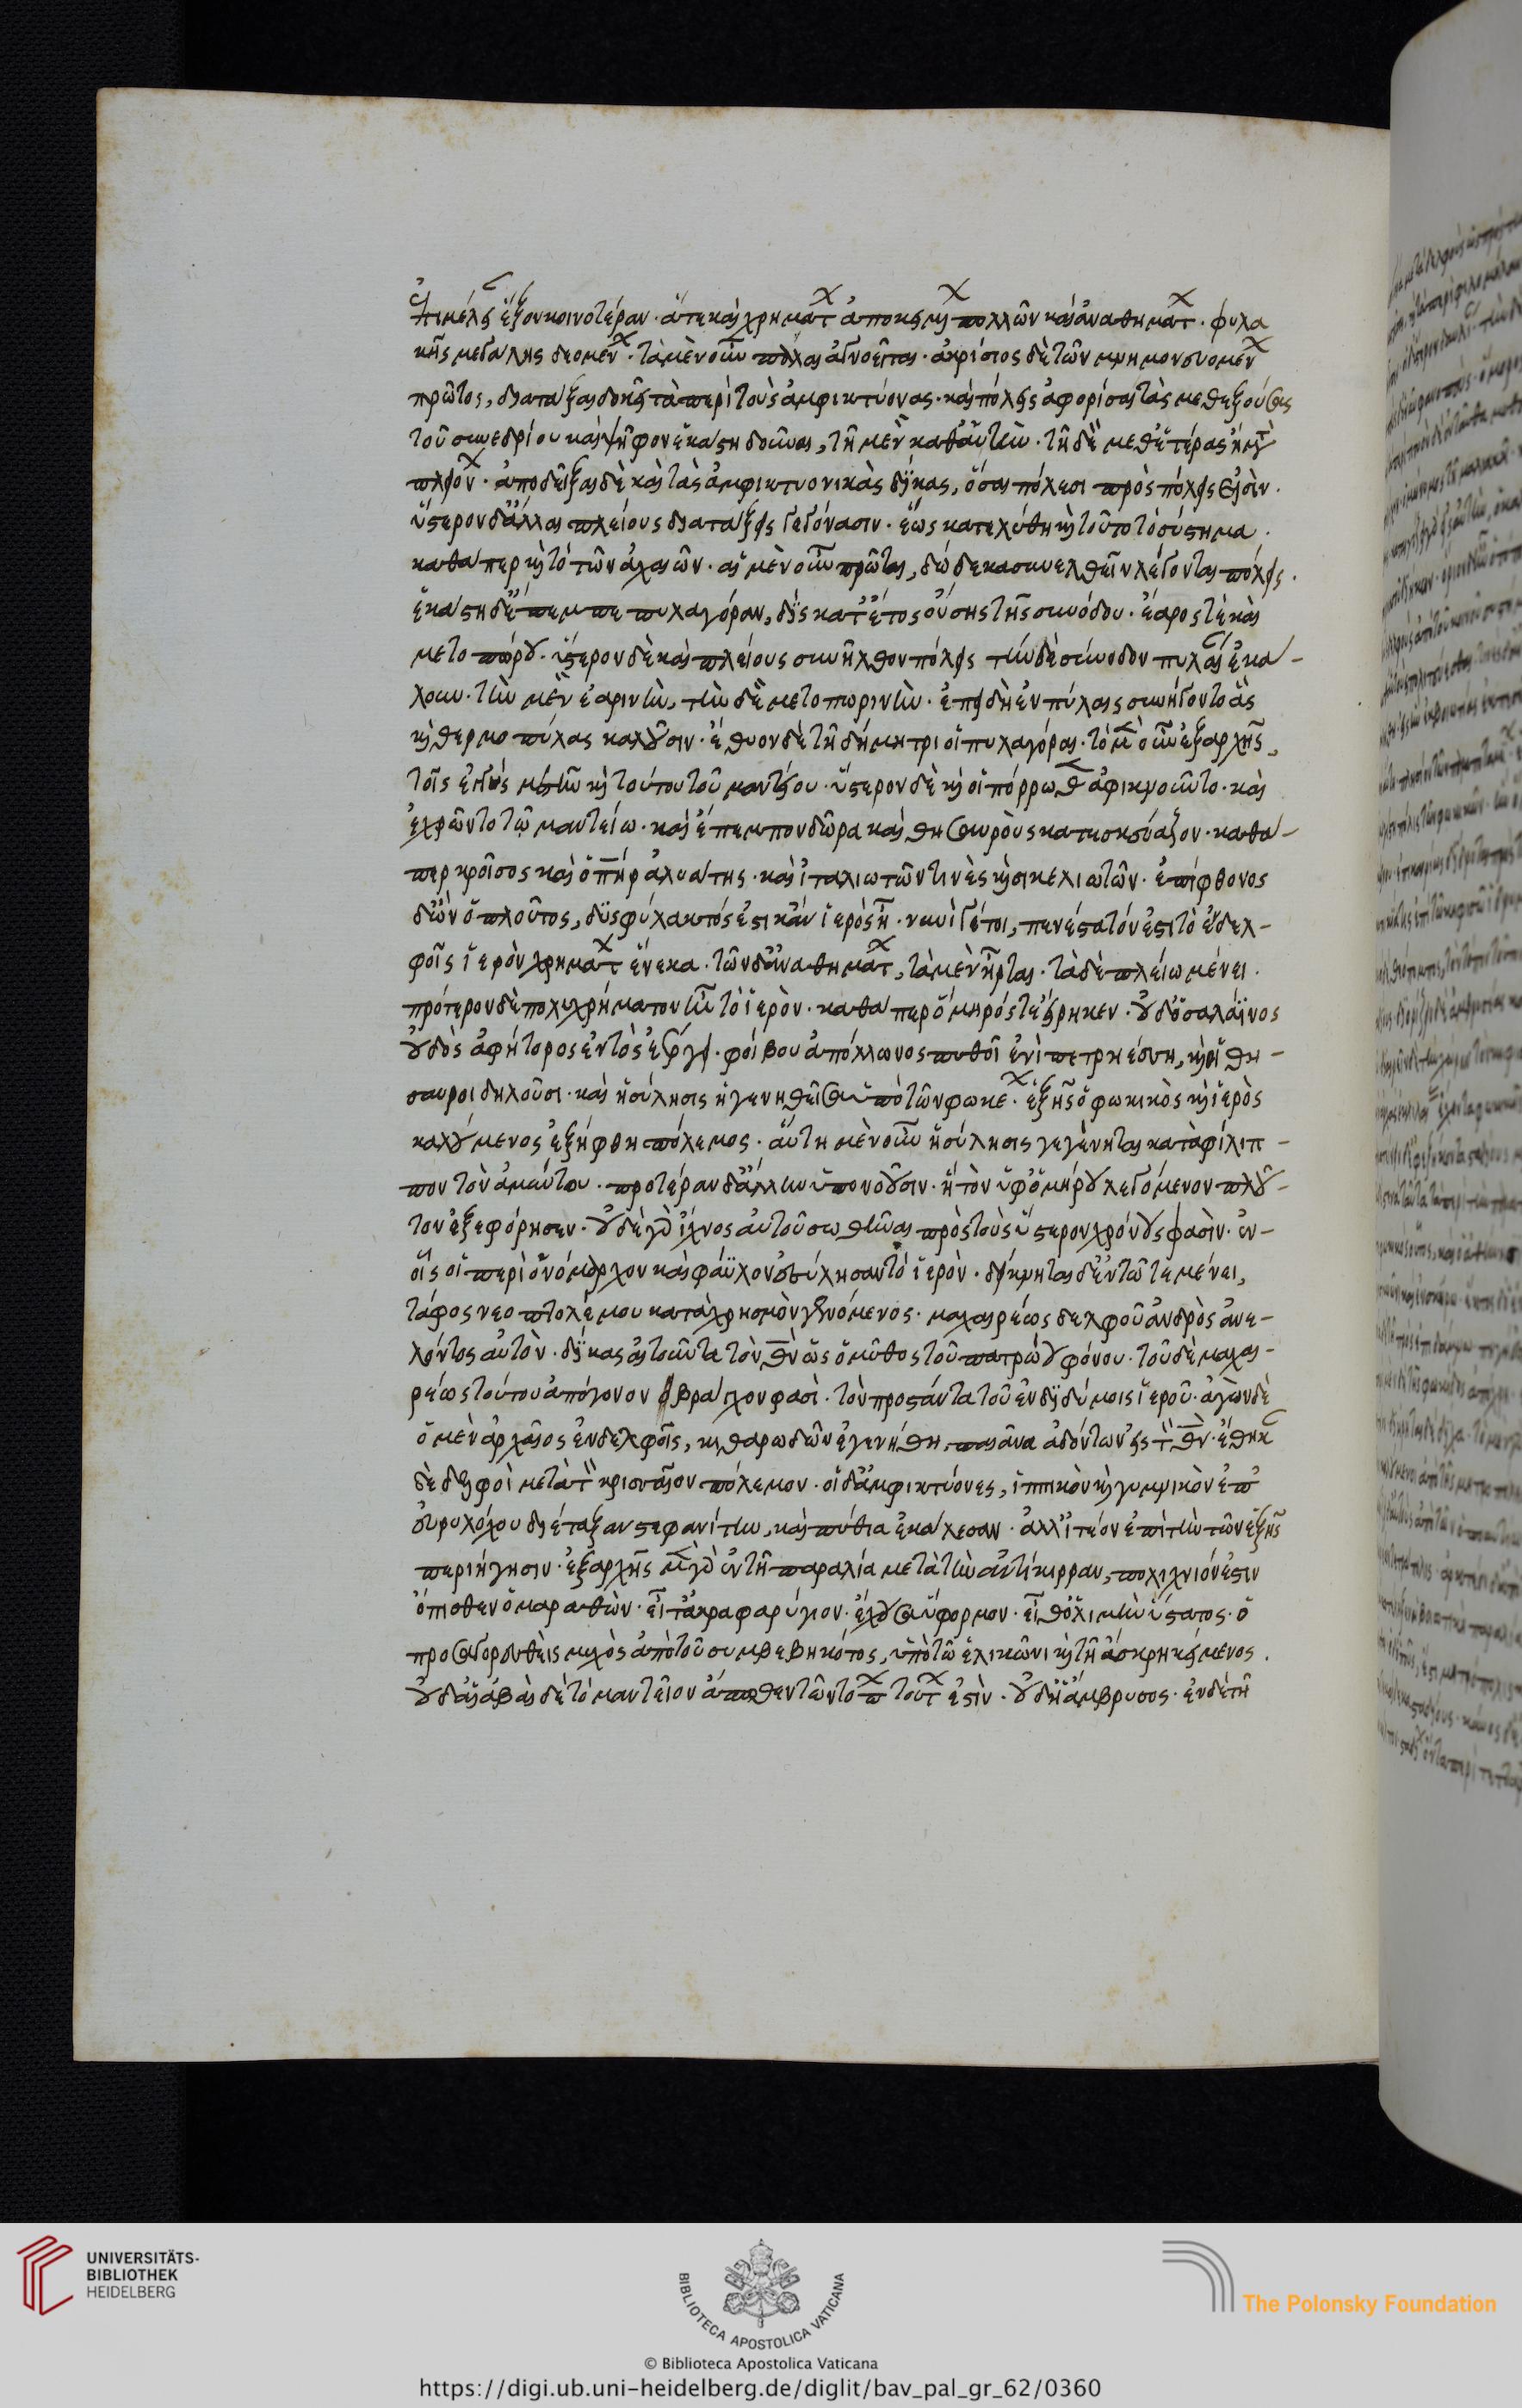 ἐπιμέλειαν ἕξον κοινοτέραν· ἅτε καὶ χρημάτων ἀποκειμένων πολλῶν καὶ ἀναθημάτων· φυλα
κῆς μεγάλης δεομένων· τὰ μὲν οὖν πάλαι ἀγνοεῖται· ἀκρίσιος δὲ τῶν μνημονευομένων
πρῶτος, διατάξαι δοκεῖ τὰ περὶ τοὺς ἀμφικτύονας· καὶ πόλεις ἀφορίσαι τὰς μεθεξούσας
τοῦ συνεδρίου καὶ ψῆφον ἑκάστῃ δοῦναι, τῇ μὲν καθ' αὑτὴν· τῇ δὲ μεθ' ἑτέρας ἢ μετὰ
πλειόνων· ἀποδεῖξαι δὲ καὶ τὰς ἀμφικτυονικὰς δίκας, ὅσαι πόλεσι πρὸς πόλεις εἰσὶν·
ὕστερον δ' ἄλλαι πλείους διατάξεις γεγόνασιν· ἕως κατελύθη καὶ τοῦτο τὸ σύστημα·
καθάπερ καὶ τὸ τῶν ἀχαιῶν· αἱ μὲν οὖν πρῶται, δώδεκα συνελθεῖν λέγονται πόλεις·
ἑκάστη δ' ἔπεμπε πυλαγόραν, δὶς κατ' ἔτος οὔσης τῆς συνόδου· ἔαρός τε καὶ
μετοπώρου· ὕστερον δὲ καὶ πλείους συνῆλθον πόλεις τὴν δὲ σύνοδον πυλαίαν ἐκά-
λουν· τὴν μὲν ἐαρινὴν, τὴν δὲ μετοπωρινὴν· ἐπειδὴ ἐν πύλαις συνήγοντο ἃς
καὶ θερμοπύλας καλοῦσιν· ἔθυον δὲ τῇ δήμητρι οἱ πυλαγόραι· τὸ μὲν οὖν ἐξαρχῆς,
τοῖς ἐγγὺς μετῆν καὶ τούτου τοῦ μαντείου· ὕστερον δὲ καὶ οἱ πόρρωθεν ἀφικνοῦντο· καὶ
ἐχρῶντο τῷ μαντείῳ· καὶ ἔπεμπον δῶρα καὶ θησαυροὺς κατεσκεύαζον· καθά-
περ κροῖσος καὶ ὁ πῆρ ἀλυάτης· καὶ ἰταλιωτῶν τινὲς καὶ σικελιωτῶν· ἐπίφθονος
δ' ὢν ὁ πλοῦτος, δυσφύλακτός ἐστι κἂν ἱερὸς ᾖ· νυνὶ γέτοι, πενέστατόν ἐστι τὸ ἐν δελ-
φοῖς ἱερὸν χρημάτων ἕνεκα· τῶν δ' ἀναθημάτων, τὰ μὲν ἦρται· τὰ δὲ πλείω μένει·
πρότερον δὲ πολυχρήματον ἦν τὸ ἱερὸν· καθάπερ ὅμηρός τε εἴρηκεν· οὐδ' ὅσα λάϊνος
οὐδὸς ἀφήτορος ἐντὸς ἐέργει· φοίβου ἀπόλλωνος πυθοῖ ἐνὶ πετρηέσσῃ, καὶ οἱ θη-
σαυροὶ δηλοῦσι· καὶ ἡ σύλησις ἡ γενηθεῖσα ὑπὸ τῶν φωκέων· ἐξ ἧς ὁ φωκικὸς καὶ ἱερὸς
καλούμενος ἐξήφθη πόλεμος· αὕτη μὲν οὖν ἡ σύλησις γεγένηται κατὰ φίλιπ-
πον τὸν ἀμύντου· προτέραν δ' ἄλλην ὑπονοοῦσιν· ἣ τὸν ὑφ' ὁμήρου λεγόμενον πλοῦ-
τον ἐξεφόρησεν· οὐδὲ γὰρ ἴχνος αὐτοῦ σωθῆναι πρὸς τοὺς ὕστερον χρόνους φασὶν· ἐν
οἷς οἱ περὶ ὀνόμαρχον καὶ φάϋλον ἐσύλησαν τὸ ἱερὸν· δείκνυται δ' ἐν τῷ τεμένει,
τάφος νεοπτολέμου κατὰ χρησμὸν γενόμενος· μαχαιρέως δελφοῦ ἀνδρὸς ἀνε-
λόντος αὐτὸν· δίκας αἰτοῦντα τὸν θν ὡς ὁ μῦθος τοῦ πατρώου φόνου· τοῦ δὲ μαχαι-
ρέως τούτου ἀπόγονον βράγχον φασὶ· τὸν προστάντα τοῦ ἐν διδύμοις ἱεροῦ· ἀγὼν δὲ
ὁ μὲν ἀρχαῖος ἐν δελφοῖς, κιθαρῳδῶν ἐγενήθη, παιᾶνα ᾀδόντων εἰς τὸν θν· ἔθηκαν
δὲ δελφοὶ μετὰ τὸν κρισαῖον πόλεμον· οἱ δ' ἀμφικτύονες, ἱππικὸν καὶ γυμνικὸν ἐπ'
εὐρυλόχου διέταξαν στεφανίτην, καὶ πύθια ἐκάλεσαν· ἀλλ' ἰτέον ἐπὶ τὴν τῶν ἑξῆς
περιήγησιν· ἐξαρχῆς μὲν γὰρ ἐν τῇ παραλίᾳ μετὰ τὴν ἀντίκιρραν, πολίχνιόν ἐστιν
ὄπισθεν ὁ μαραθὼν· εἶτ' ἄκρα φαρύγιον· ἔχουσα ὕφορμον· εἶθ' ὁ λιμὴν ὕστατος· ὁ
προσαγορευθεὶς μυχὸς ἀπὸ τοῦ συμβεβηκότος, ὑπὸ τῷ ἑλικῶνι καὶ τῇ ἄσκρῃ κείμενος·
οὐδ' αἱ ἄβαι δὲ τὸ μαντεῖον ἄπωθεν τῶν τόπων τούτων ἐστὶν· οὐδ' ἡ ἄμβρυσος· ἐν δὲ τῇ
UNIVERSITÄTS-
BIBLIOTHEK
HEIDELBERG
BIBLIOTECA APOSTOLICA VATICANA
The Polonsky Foundation
© Biblioteca Apostolica Vaticana
https://digi.ub.uni-heidelberg.de/diglit/bav_pal_gr_62/0360